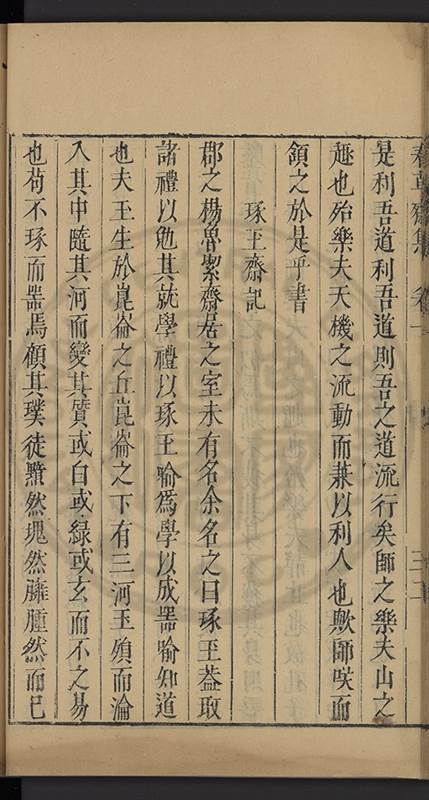 春草齋集 卷十
是利吾道利吾道則吾之道流行矣師之樂夫山之
趣也殆樂夫天機之流動而兼以利人也歟師咲而
頷之於是乎書
琢玉齋記
郡之楊魯絜齋居之室未有名余名之曰琢玉蓋取
諸禮以勉其就學禮以琢玉喻為學以成器喻知道
也夫玉生於崑崙之丘崑崙之下有三河玉殞而淪
入其中隨其河而變其質或白或綠或玄而不之易
也苟不琢而噐焉頋其璞徒黯然塊然臃腫然而已